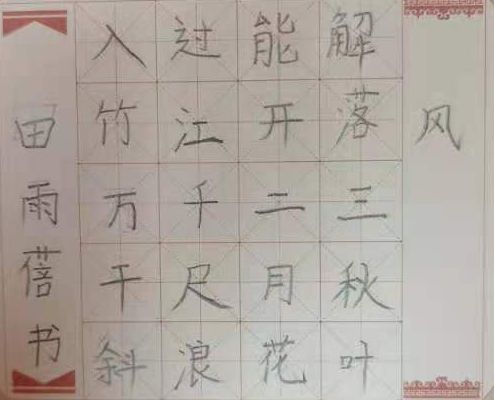 风
解落三秋叶
能开二月花
过江千尺浪
入竹万干斜
田雨蓓书